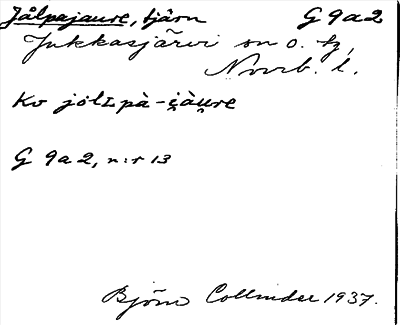 Jålpajaure, tjärn G 9 a 2
Jukkasjärvi sn o. tg,
Norrb. l.
Kv jolʟpà-i̯àu̯re
G 9 a 2, n:r 13
Björn Collinder 1937.